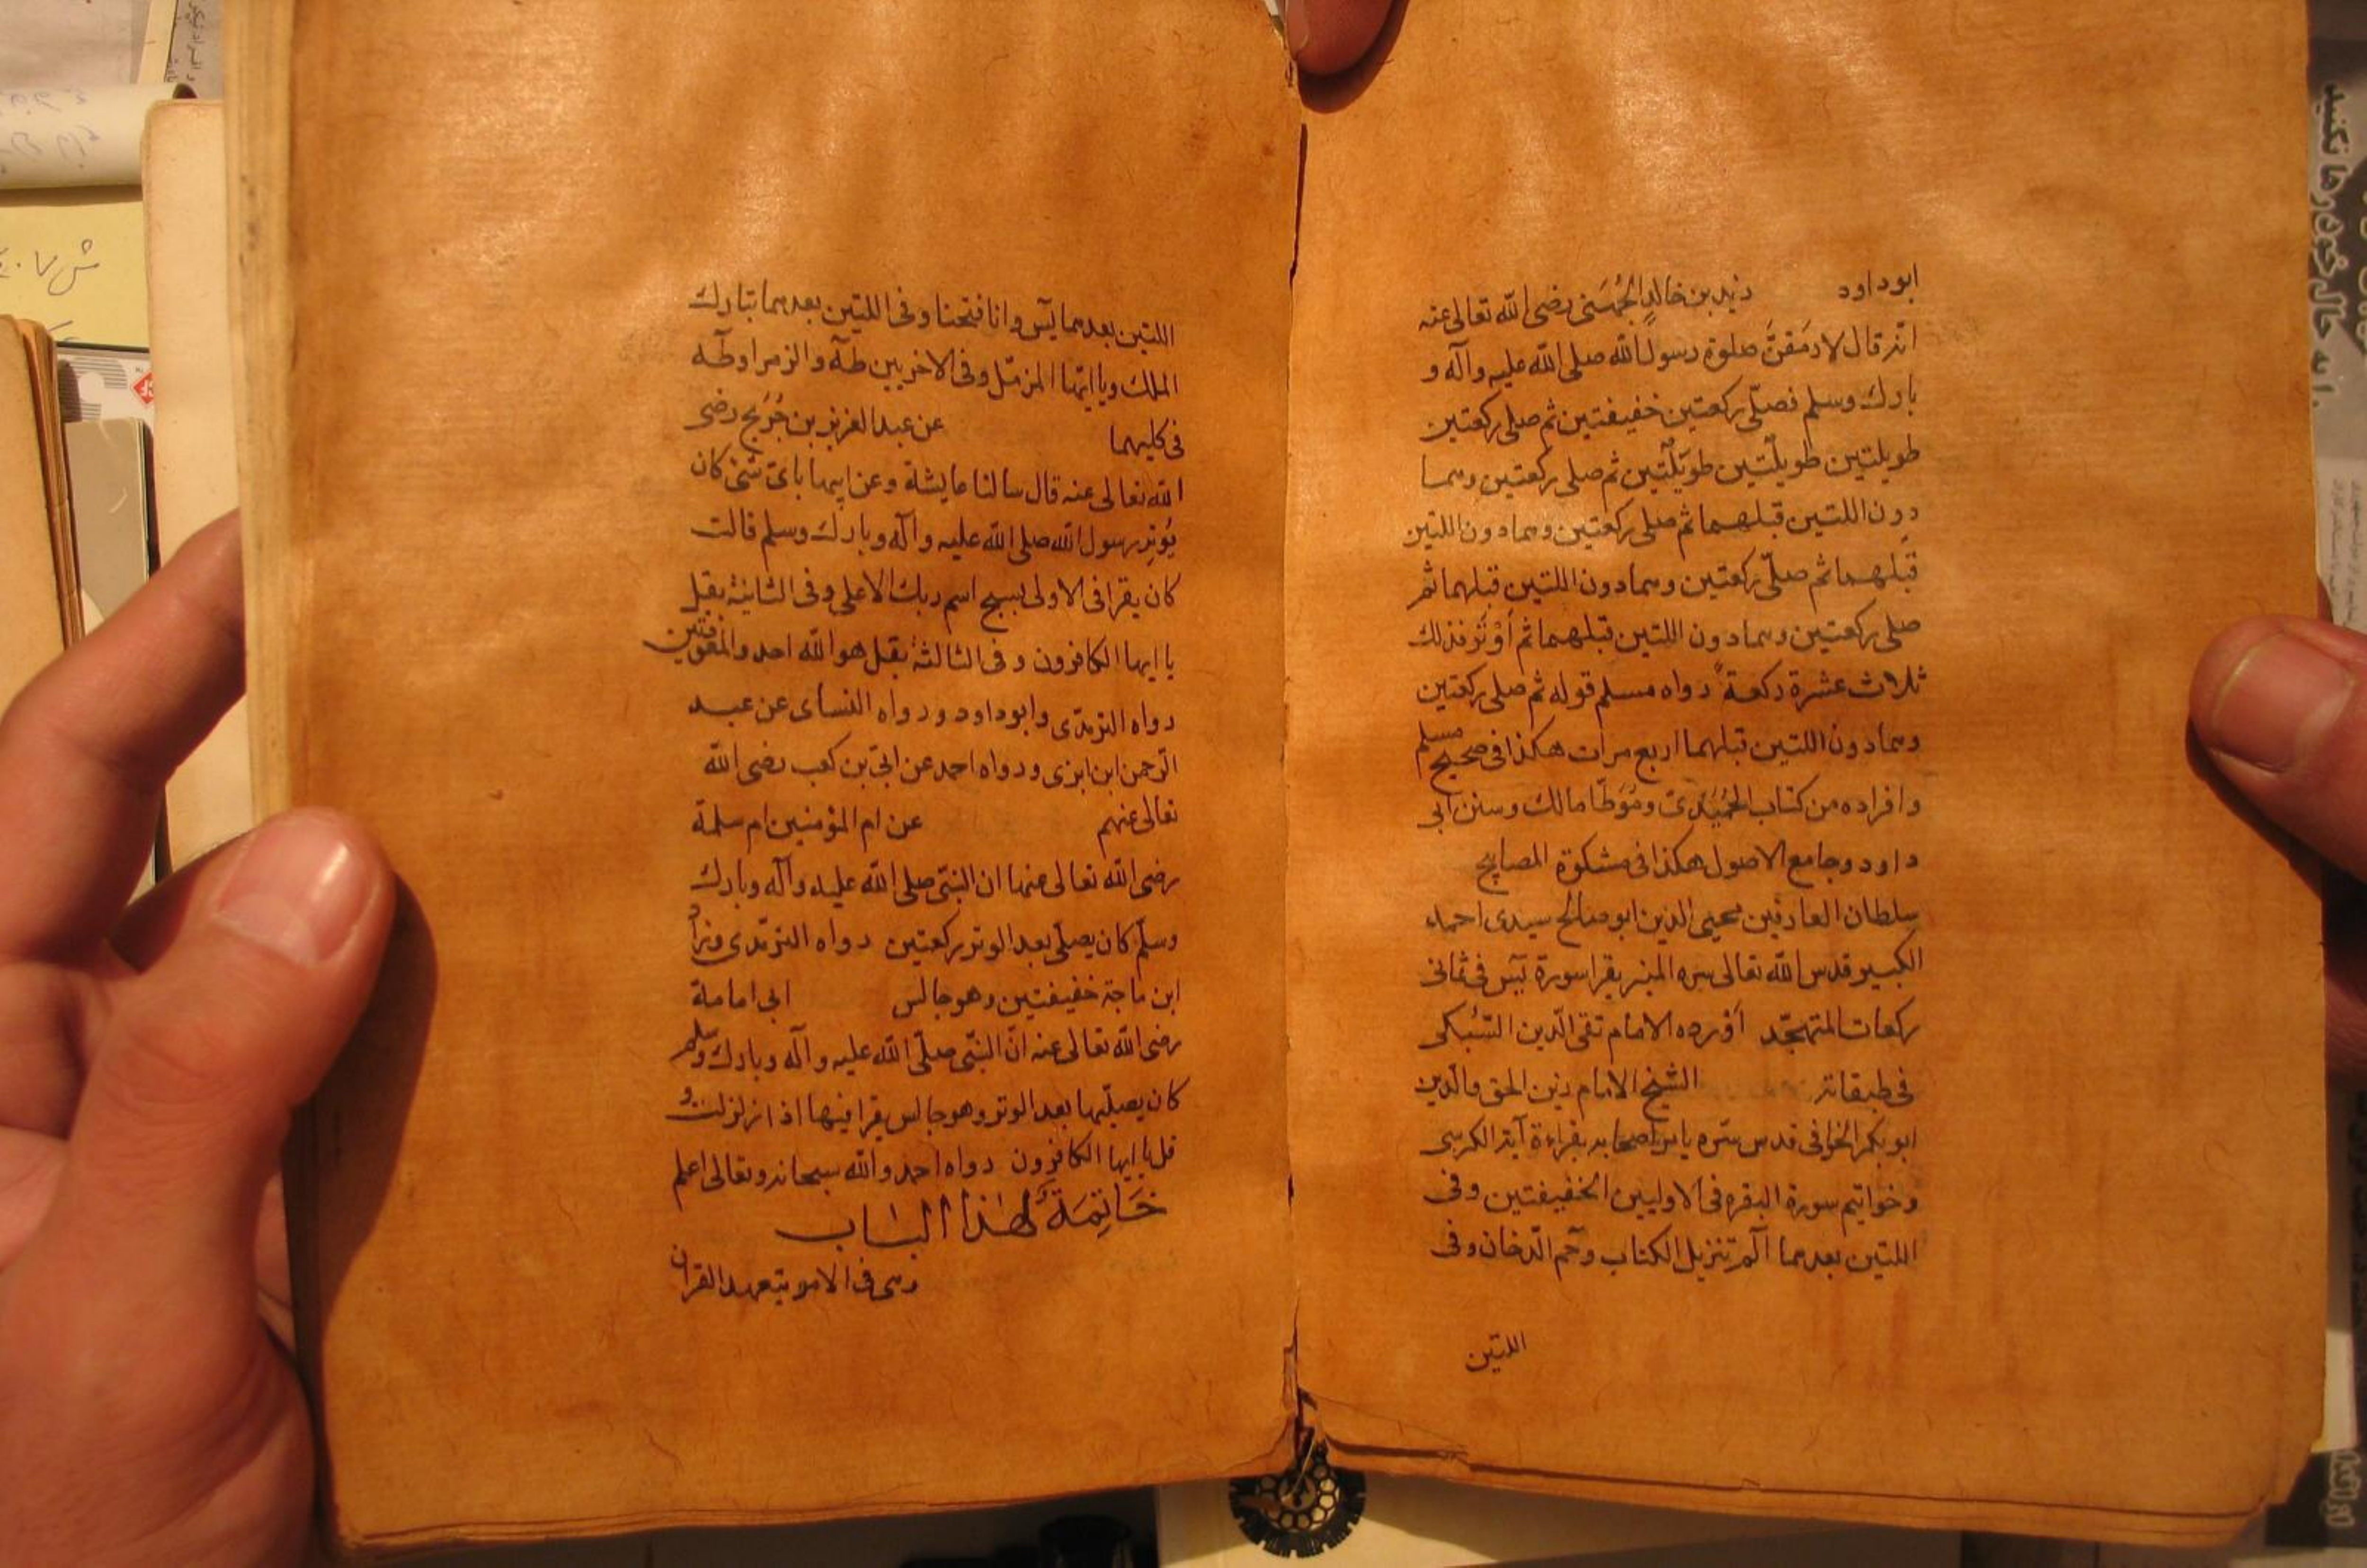 ابوداود زيد بن خالدٍ الجُهَنى رضى الله تعالى عنه
انه قال لارمَقنَّ صلوة رسول الله صلى الله عليه وآله و
بارك وسلم فصلّى ركعتين خفيفتين ثم صلى ركعتين
طويلتين طويلتين طويلتين ثم صلى ركعتين وهما
دون اللتين قبلهما ثم صلى ركعتين وهما دون اللتين
قبلهما ثم صلّى ركعتين وهما دون اللتين قبلهما ثم
صلى ركعتين وهما دون اللتين قبلهما ثم أوْتَرَ فذلك
ثلاث عشرة ركعةً رواه مسلم قوله ثم صلى ركعتين
وهما دون اللتين قبلهما اربع مرات هكذا فى صحيح مسلم
وافراده من كتاب الحُمَيْدى ومُوَطَّا مالك وسنن ابى
داود وجامع الاصول هكذا فى مشكوة المصابيح
سلطان العارفين محيى الدين ابو صالح سيدى احمد
الكبير قدس الله تعالى سره المنير يقرا سورة يٓس فى ثمانى
ركعات المتهجّد اَوْرده الامام تقى الّدين السُّبكى
فى طبقاته الشيخ الامام زين الحق والّدين
ابو بكر الخوافى قدس سّره يامر اصحابه بقراءة آية الكرسى
وخواتيم سورة البقره فى الاوليين الخفيفتين وفى
اللتين بعدهما آلم تنزيل الكتاب وحم الّدخان وفى
اللتين
اللتين بعدهما يٓس وانا فتحنا وفى اللتين بعدهما تبارك
الملك ويا ايّها المزمّل وفى الاخريين طٓه والزمر او طٓه
فى كليهما عن عبد العزيز بن جُرَيج رضى
الله تعالى عنه قال سالنا عايشة وعن ابيها باىّ شئ كان
يُوتِر رسول الله صلى الله عليه وآله وبارك وسلم قالت
كان يقرا فى الاولى بسبح اسم ربك الاعلى وفى الثانية بقل
يا ايها الكافرون وفى الثالثة بقل هو الله احد والمعوّذتين
رواه الترمذى وابوداود ورواه النساى عن عبد
الرّحمن ابن ابزى ورواه احمد عن ابىّ بن كعب رضى الله
تعالى عنهم عن ام المؤمنين ام سلمة
رضى الله تعالى عنها ان النبّى صلى الله عليه وآله وبارك
وسلّم كان يصلّى بعد الوتر ركعتين رواه الترمذى وزاد
ابن ماجة خفيفتين وهو جالس ابى امامة
رضى الله تعالى عنه انّ النبّى صلّى الله عليه وآله وبارك وسلم
كان يصلّيهما بعد الوتر وهو جالس يقرا فيهما اذا زلزلت و
قل يا ايها الكافرون رواه احمد والله سبحانه وتعالى اعلم
خَاتِمَةٌ لهٰذا الباب
وهى فى الامر بتعهد القران